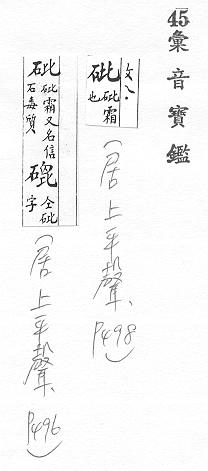 45 彙音寶鑑
砒 砒霜也
(居上平聲, P498)
砒 砒霜又名信石毒質 磇 仝砒字
(居上平聲, P496)